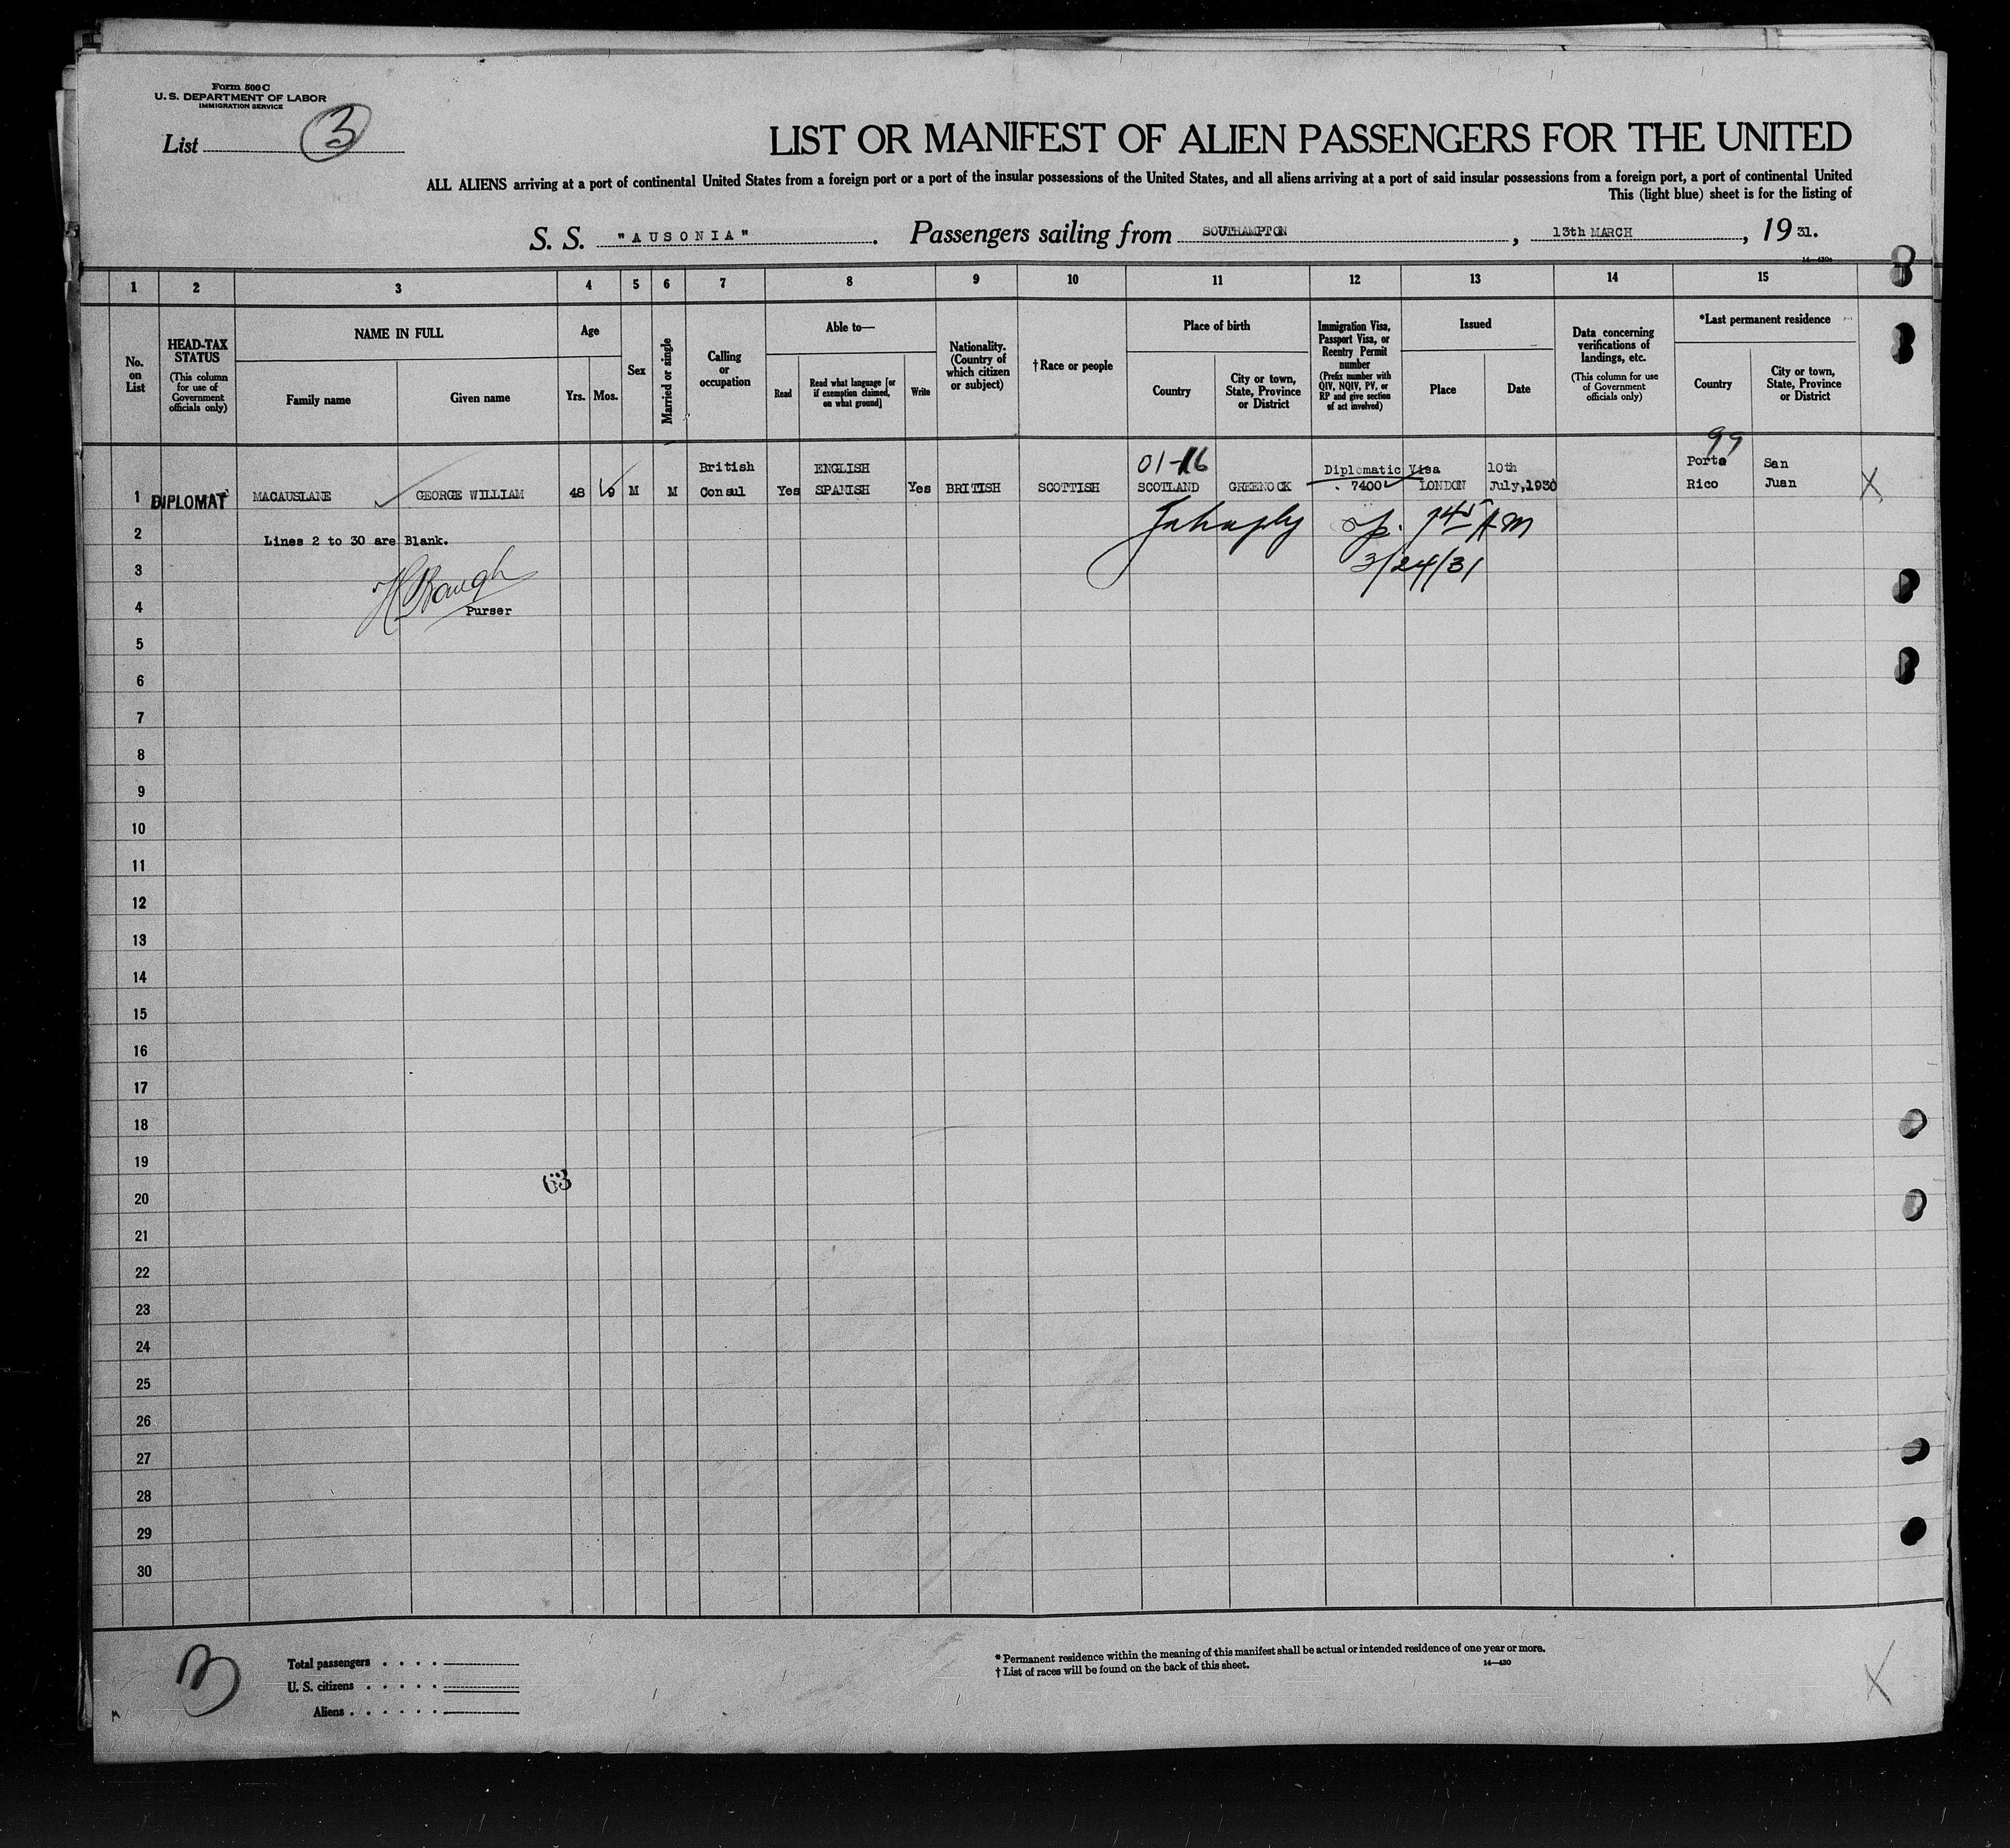 Form 500 C
U. S. DEPARTMENT OF LABOR
IMMIGRATION SERVICE
List 3
LIST OR MANIFEST OF ALIEN PASSENGERS FOR THE UNITED
ALL ALIENS arriving at a port of continental United States from a foreign port or a port of the insular possessions of the United States, and all aliens arriving at a port of said insular possessions from a foreign port, a port of continental United
This (light blue) sheet is for the listing of
S. S. "AUSONIA". Passengers sailing from SOUTHAMPTON, 13th MARCH, 1931.
14—430a
1 2 3 4 5 6 7 8 9 10 11 12 13 14 15
No. on List
HEAD-TAX STATUS
(This column for use of Government officials only)
NAME IN FULL
Family name
Given name
Age
Yrs. Mos.
Sex
Married or single
Calling or occupation
Able to—
Read
Read what language [or if exemption claimed, on what ground]
Write
Nationality. (Country of which citizen or subject)
†Race or people
Place of birth
Country
City or town, State, Province or District
Immigration Visa, Passport Visa, or Reentry Permit number
(Prefix number with QIV, NQIV, PV, or RP and give section of act involved)
Issued
Place
Date
Data concerning verifications of landings, etc.
(This column for use of Government officials only)
*Last permanent residence
Country
City or town, State, Province or District
01-16
99
British ENGLISH Diplomatic Visa 10th Porto San
1 DIPLOMAT MACAUSLANE GEORGE WILLIAM 48 9 M M Consul Yes SPANISH Yes BRITISH SCOTTISH SCOTLAND GREENOCK . 7400 LONDON July,1930 Rico Juan X
2 Lines 2 to 30 are Blank. 745 AM
3 H Baugh 3/24/31
4 Purser
5
6
7
8
9
10
11
12
13
14
15
16
17
18
19
63
20
21
22
23
24
25
26
27
28
29
30
3
Total passengers . . . .
U. S. citizens . . . . .
Aliens . . . . . .
* Permanent residence within the meaning of this manifest shall be actual or intended residence of one year or more.
† List of races will be found on the back of this sheet.
14—430
X